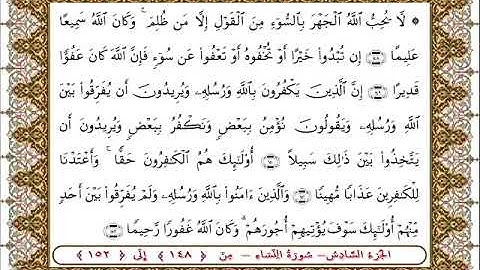 ۞ لَّا يُحِبُّ ٱللَّهُ ٱلْجَهْرَ بِٱلسُّوٓءِ مِنَ ٱلْقَوْلِ إِلَّا مَن ظُلِمَ ۚ وَكَانَ ٱللَّهُ سَمِيعًا
عَلِيمًا ﴿١٤٨﴾ إِن تُبْدُوا۟ خَيْرًا أَوْ تُخْفُوهُ أَوْ تَعْفُوا۟ عَن سُوٓءٍ فَإِنَّ ٱللَّهَ كَانَ عَفُوًّا
قَدِيرًا ﴿١٤٩﴾ إِنَّ ٱلَّذِينَ يَكْفُرُونَ بِٱللَّهِ وَرُسُلِهِۦ وَيُرِيدُونَ أَن يُفَرِّقُوا۟ بَيْنَ
ٱللَّهِ وَرُسُلِهِۦ وَيَقُولُونَ نُؤْمِنُ بِبَعْضٍ وَنَكْفُرُ بِبَعْضٍ وَيُرِيدُونَ أَن
يَتَّخِذُوا۟ بَيْنَ ذَٰلِكَ سَبِيلًا ﴿١٥٠﴾ أُو۟لَٰٓئِكَ هُمُ ٱلْكَٰفِرُونَ حَقًّا ۚ وَأَعْتَدْنَا
لِلْكَٰفِرِينَ عَذَابًا مُّهِينًا ﴿١٥١﴾ وَٱلَّذِينَ ءَامَنُوا۟ بِٱللَّهِ وَرُسُلِهِۦ وَلَمْ يُفَرِّقُوا۟ بَيْنَ أَحَدٍ
مِّنْهُمْ أُو۟لَٰٓئِكَ سَوْفَ يُؤْتِيهِمْ أُجُورَهُمْ ۗ وَكَانَ ٱللَّهُ غَفُورًا رَّحِيمًا ﴿١٥٢﴾
الجزء السادس – سورة النساء – من ﴿١٤٨﴾ إلى ﴿١٥٢﴾